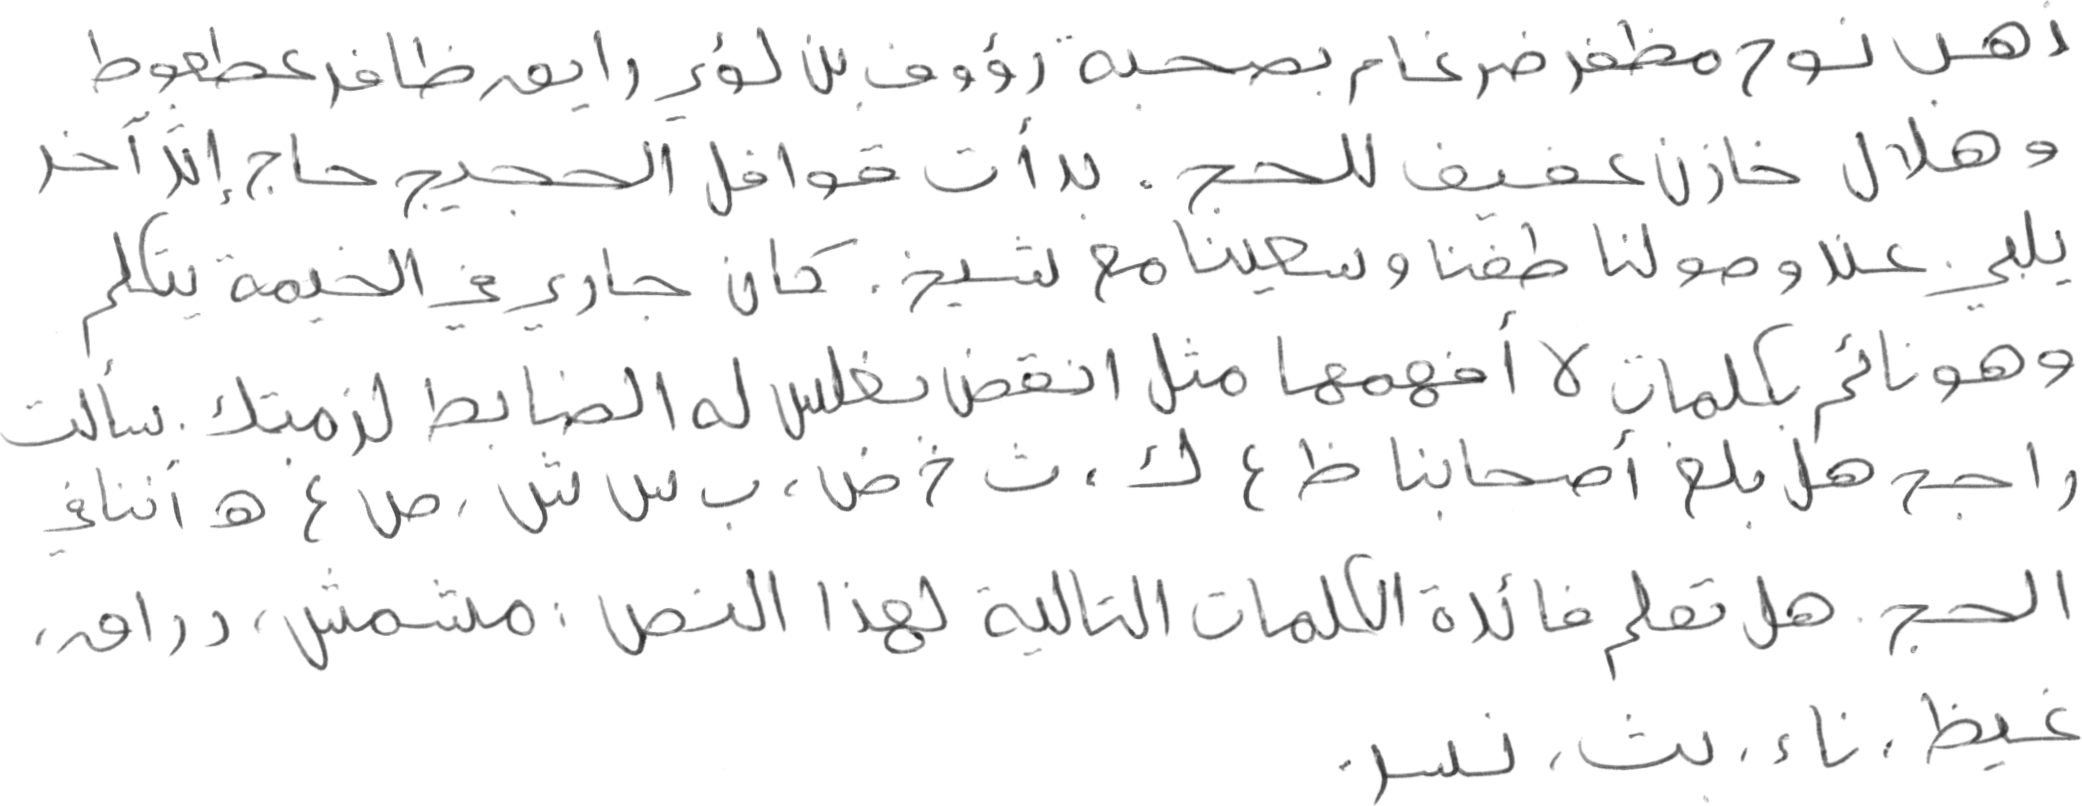 ذهب نوح مظفر ضرغام بصحبة رؤوف بن لؤي رايق ظافر عطعوط
وهلال خازن عفيف للحج. بدأت قوافل الحجيج حاج إثر آخر
يلبي. عند وصولنا طفنا وسعينا مع شيخ. كان جاري في الخيمة يتكلم
وهو نائم بكلمات لا أفهمها مثل انقض نغلس له الضابط لزمتك. سألت
راجح هل بلغ أصحابنا ظ ع ك، ث خ ض، ب س ش، ص غ ه أننا في
الحج. هل تعلم فائدة الكلمات التالية لهذا النص: مشمش، دراق،
غيظ، ناء، بث، نسر.